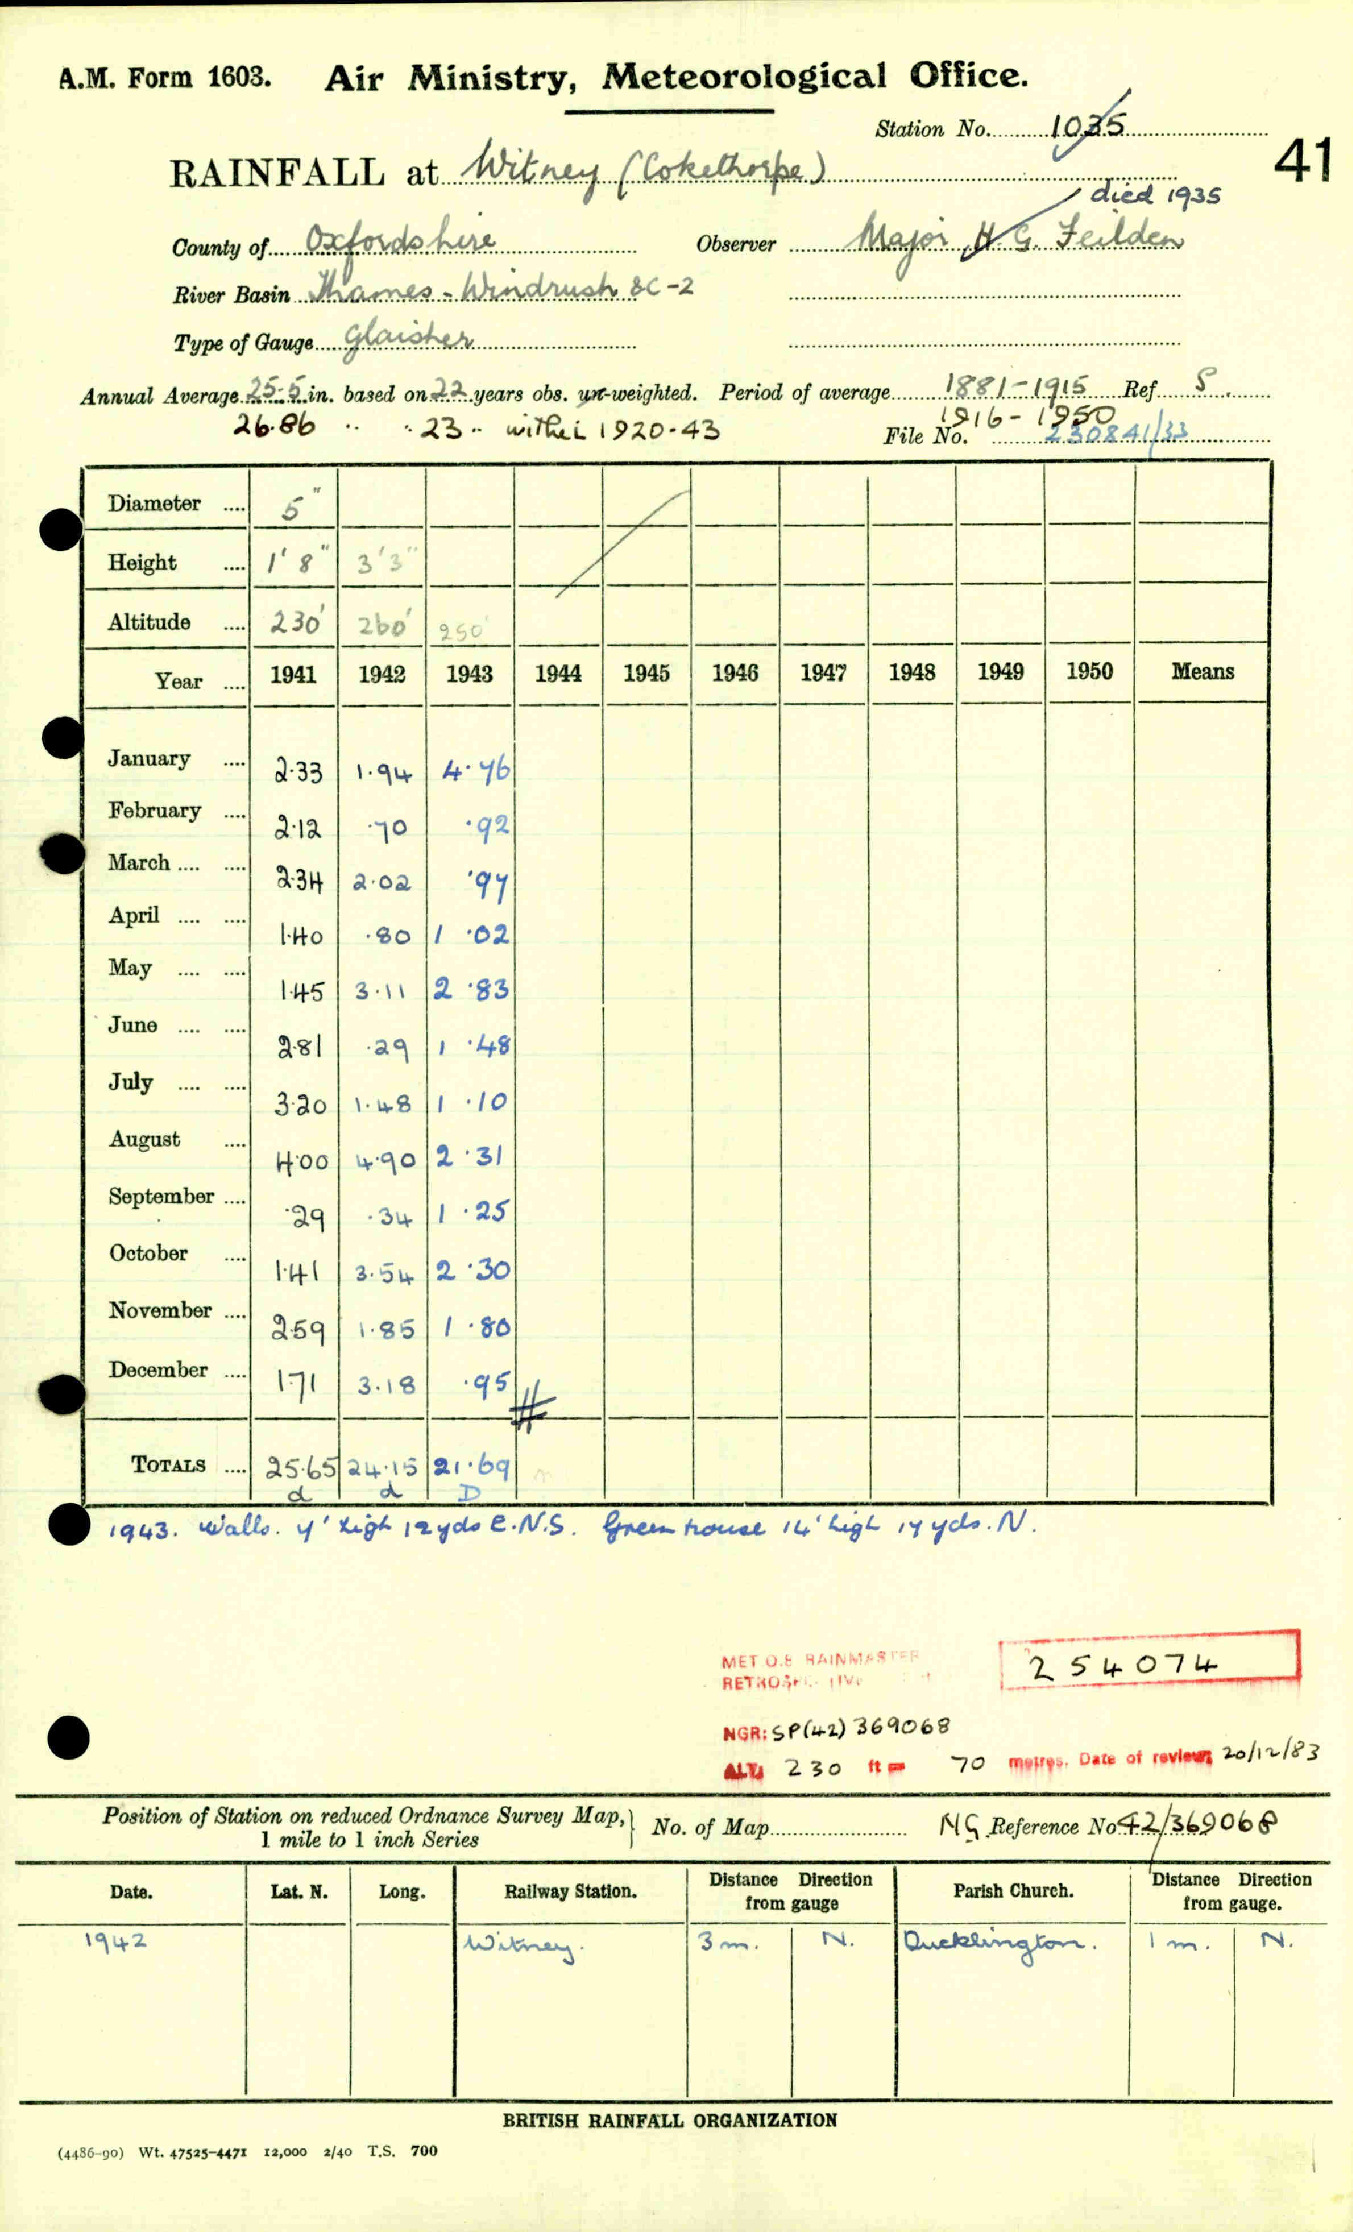 A.M. Form 1603. Air Ministry, Meteorological Office.
Station No. 1035
41
RAINFALL at Witney (Cokethorpe)
died 1935
County of Oxfordshire Observer Major H. G. Feilden
River Basin Thames - Windrush 8C-2
Type of Gauge Glaisher
Annual Average 25.5 in. based on 22 years obs. un-weighted. Period of average 1881-1915 Ref. S.
26.86 .. .. 23 .. 1920-43 1916-1950
File No. 230841/33
Diameter .... 5"
Height .... 1' 8" 3'3"
Altitude .... 230' 260' 250'
Year .... 1941 1942 1943 1944 1945 1946 1947 1948 1949 1950 Means
January .... 2.33 1.94 4.76
February .... 2.12 .70 .92
March .... .... 2.34 2.02 .97
April .... .... 1.40 .80 1 .02
May .... .... 1.45 3.11 2 .83
June .... .... 2.81 .29 1 .48
July .... .... 3.20 1.48 1 .10
August .... 4.00 4.90 2 .31
September .... .29 .34 1 .25
October .... 1.41 3.54 2 .30
November .... 2.59 1.85 1 .80
December .... 1.71 3.18 .95
TOTALS .... 25.65 24.15 21.69
d d D
1943. Walls. 7' high 12yds E.N.S. Green house 14' high 17 yds. N.
MET O.8 RAINMASTER
254074
NGR: SP(42) 369068
ALT: 230 ft = 70 metres. Date of review: 20/12/83
Position of Station on reduced Ordnance Survey Map, } No. of Map NG Reference No. 42/369068
1 mile to 1 inch Series
Date. Lat. N. Long. Railway Station. Distance Direction from gauge Parish Church. Distance Direction from gauge.
1942 Witney. 3 m. N. Ducklington. 1 m. N.
BRITISH RAINFALL ORGANIZATION
(4486-90) Wt. 47525-4471 12,000 2/40 T.S. 700